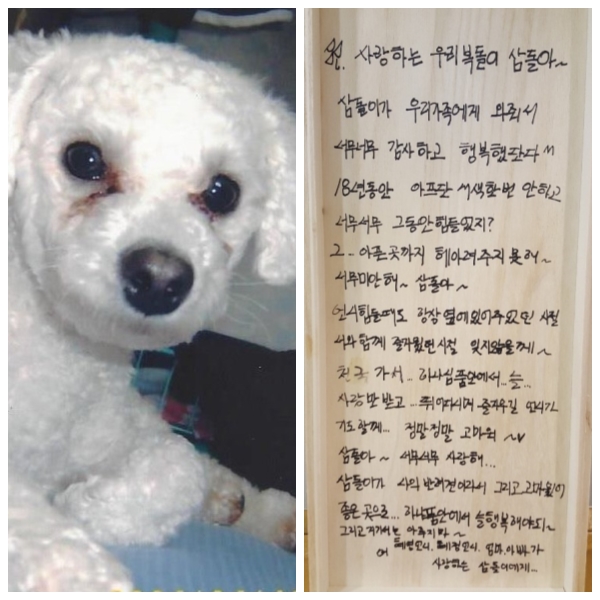 사랑하는 우리 복돌이 삼돌아~
삼돌이가 우리가족에게 와줘서
너무너무 감사하고 행복했단다^^
18년동안 아프단 내색한번 안하고
너무너무 그동안 힘들었지?
그.. 아픈곳까지 헤아려주지 못해~
너무미안해~ 삼돌아~
언니힘들때도 항상 옆에있어주었던 시절
너와 함께 즐거웠던시절 잊지않을께~
천국 가서... 하나님품안에서... 늘...
사랑만 받고 ... 뛰어다니며 즐거우길 언니가
기도할께... 정말정말 고마워 ~
삼돌아~ 너무너무 사랑해...
삼돌이가 나의 반려견이라서 그리고 고마웠어
좋은 곳으로... 하나님품안에서 늘행복해야되~
그리고 거기서는 아프지마~
엄마.아빠가
사랑하는 삼돌이에게...